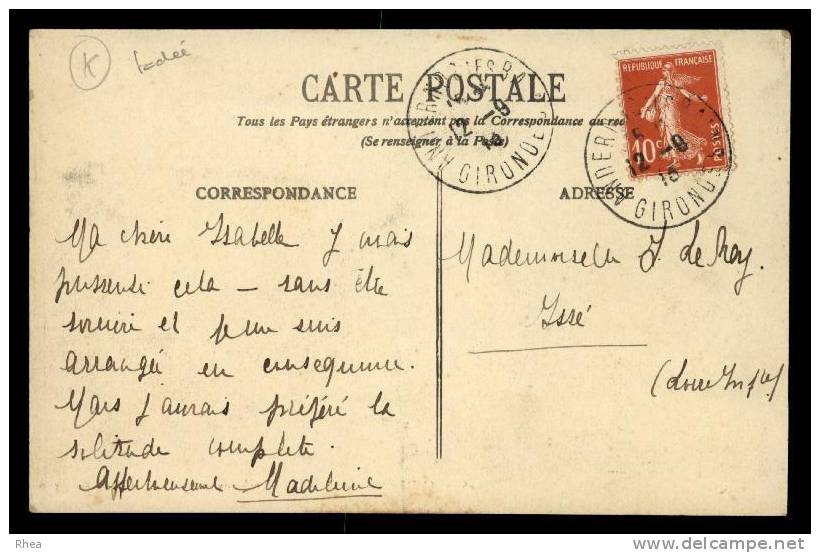 K
CARTE POSTALE
Tous les Pays étrangers n'acceptent pas la Correspondance au
(Se renseigner à la Poste)
RÉPUBLIQUE FRANÇAISE
10c
POSTES
GIRONDE
12 -9
GIRONDE
12 -9
CORRESPONDANCE
ADRESSE
Ma chère Isabelle J'avais
pressenti cela – sans être
sorcière et je me suis
arrangée en conséquence.
Mais j'aurais préféré la
solitude complète.
Affectueusement Madeleine
Mademoiselle I. Le Roy.
Issé
(Loire Infre)
Rhea
www.delcampe.net